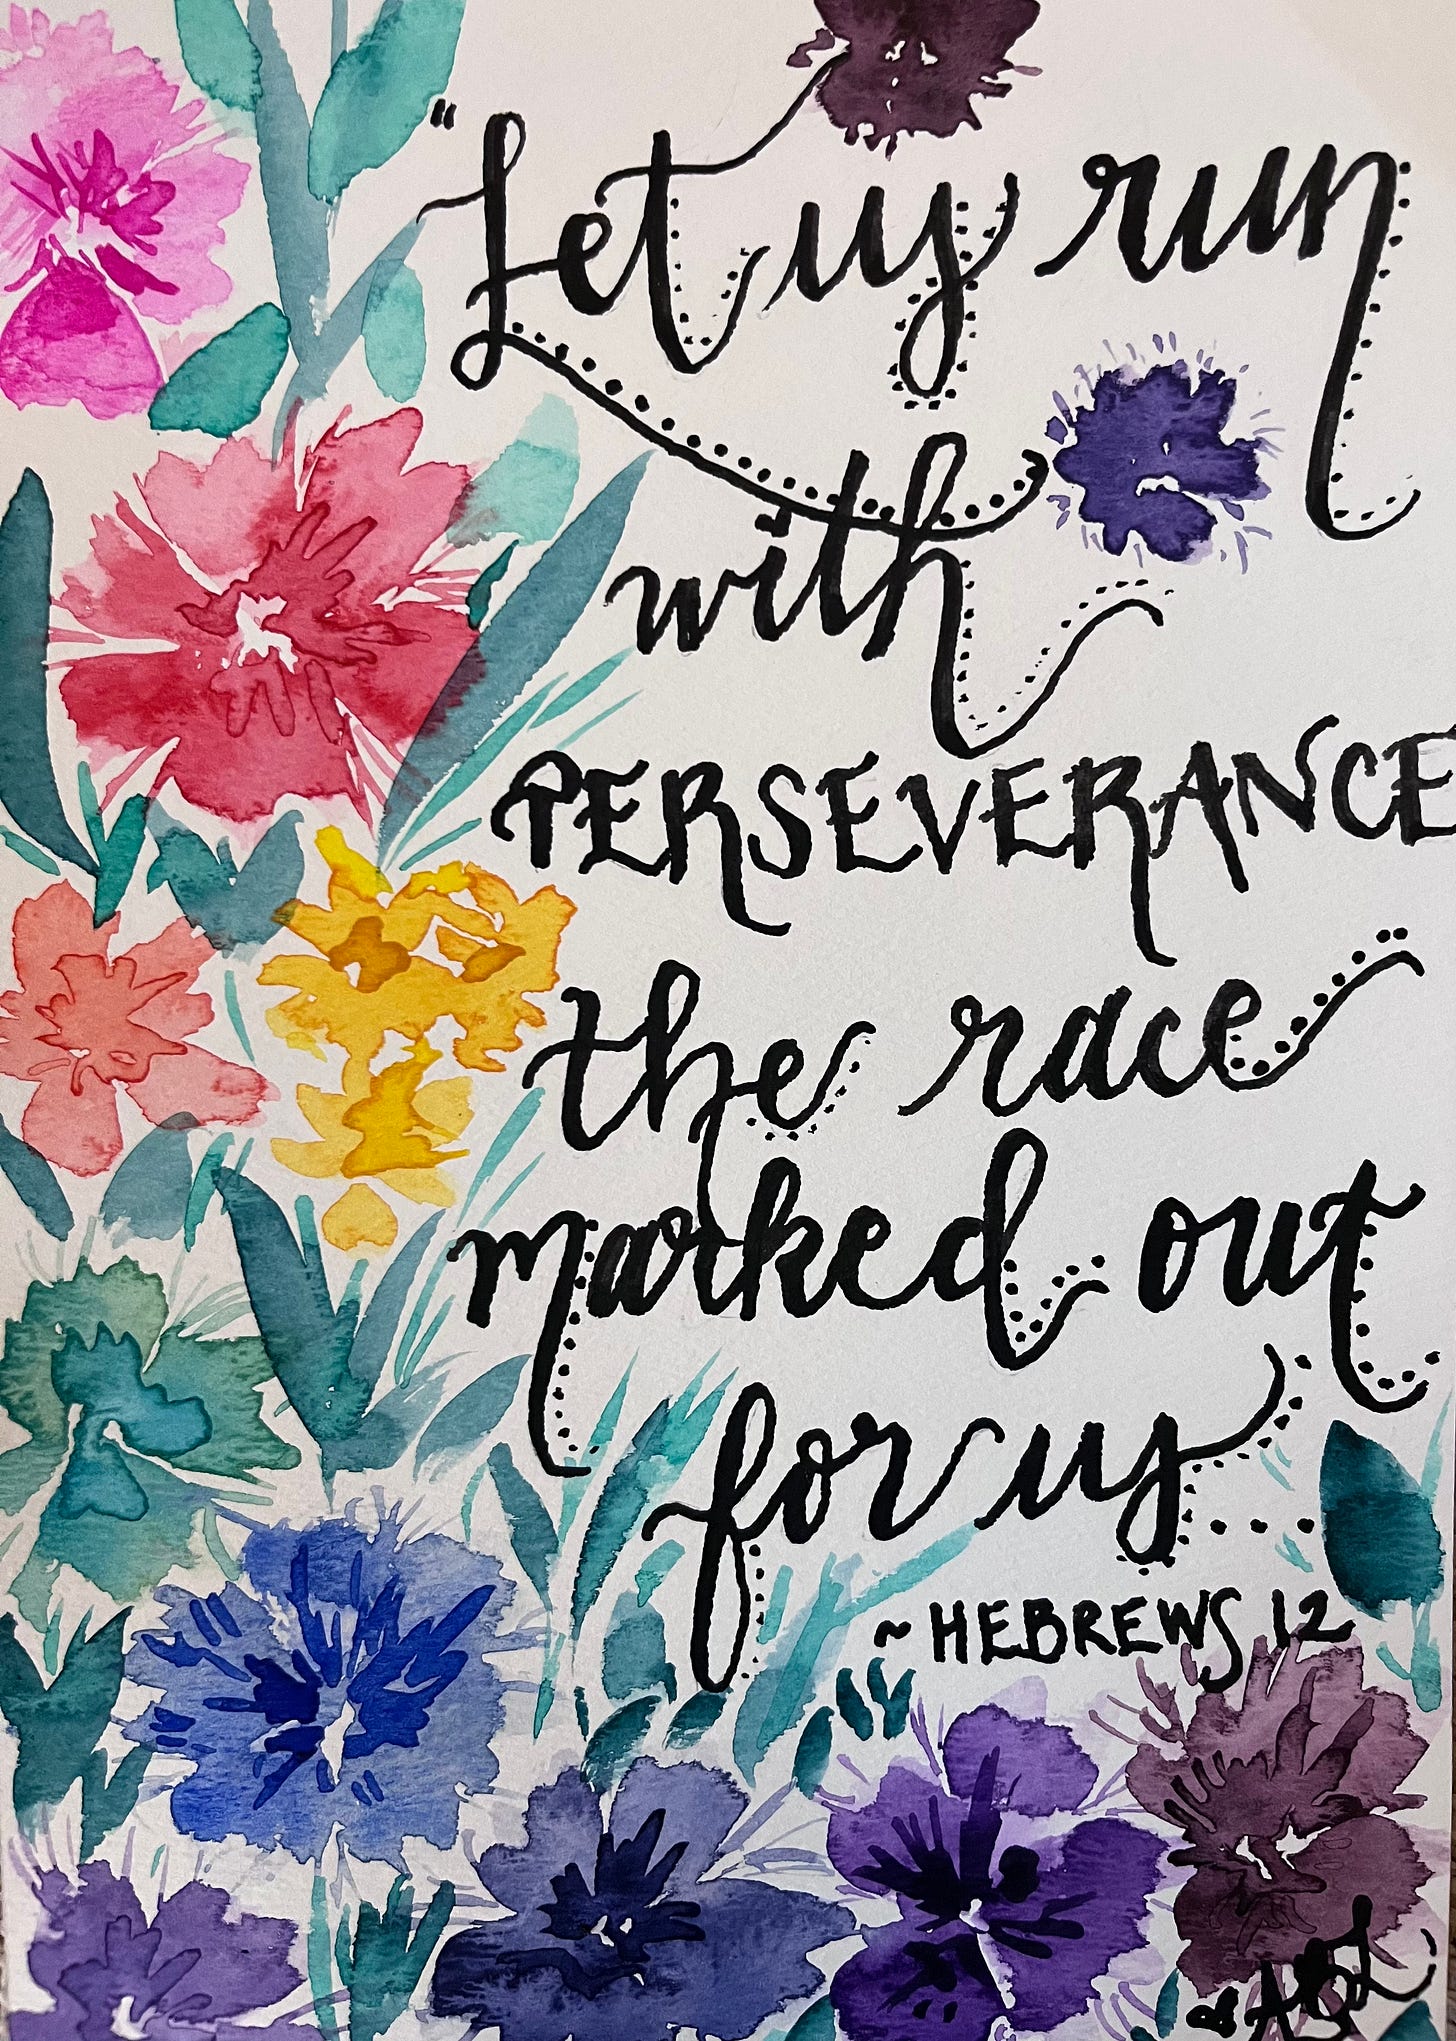 "Let us run
with
PERSEVERANCE
the race
marked out
for us....
~HEBREWS 12